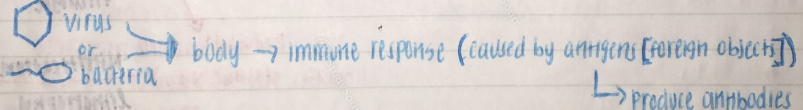 virus
or
bacteria
body → immune response (caused by antigens [foreign objects])
↳ produce antibodies